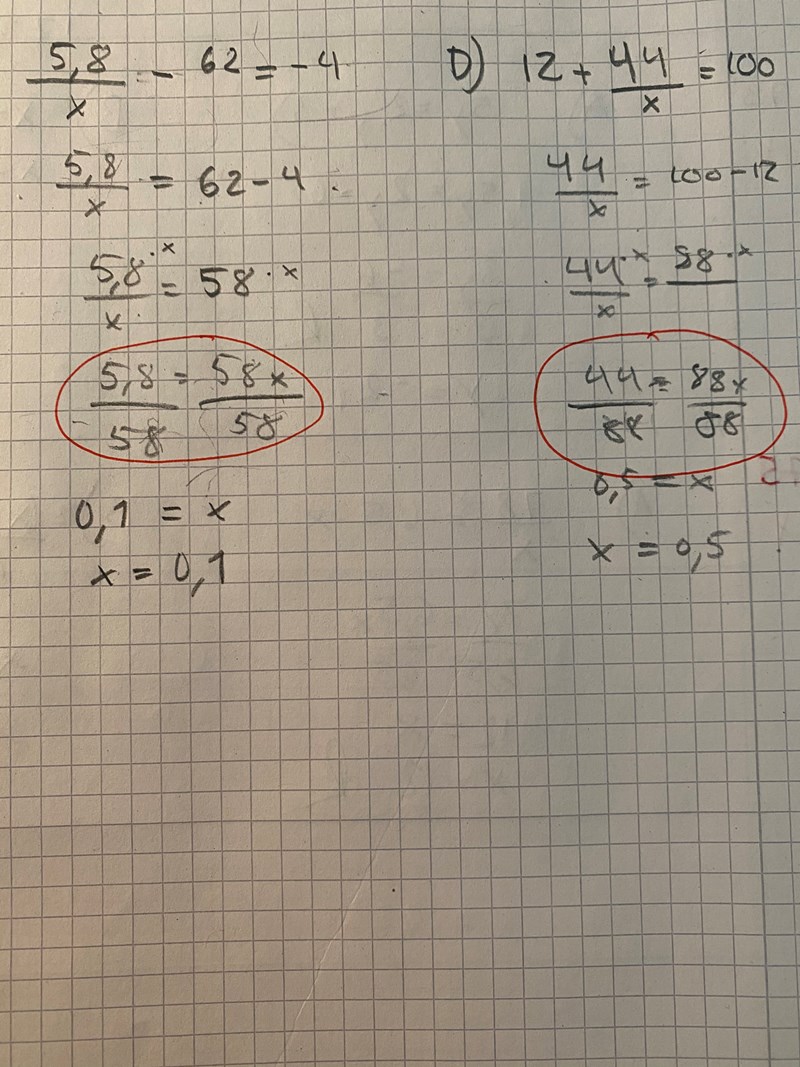 5,8/x - 62 = -4
5,8/x = 62 - 4
5,8·x/x = 58·x
5,8/58 = 58x/58
0,1 = x
x = 0,1
D) 12 + 44/x = 100
44/x = 100 - 12
44·x/x = 58·x
44/88 = 88x/88
0,5 = x
x = 0,5